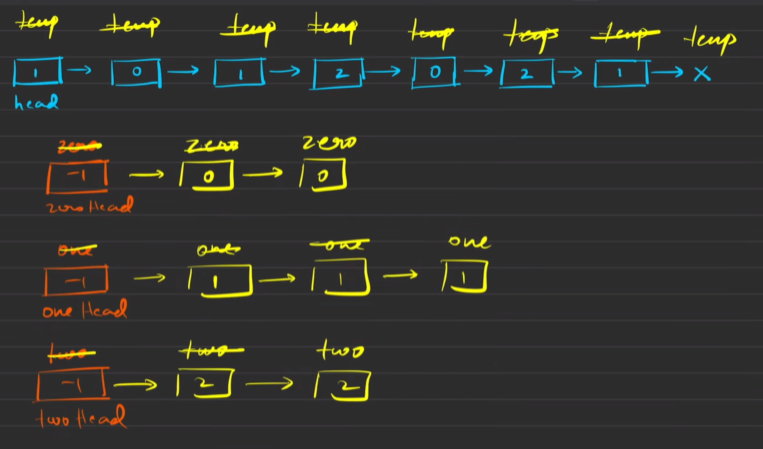 temp temp temp temp temp temp temp temp
1 → 0 → 1 → 2 → 0 → 2 → 1 → X
head
zero zero zero
-1 → 0 → 0
zero Head
one one one one
-1 → 1 → 1 → 1
one Head
two two two
-1 → 2 → 2
two Head